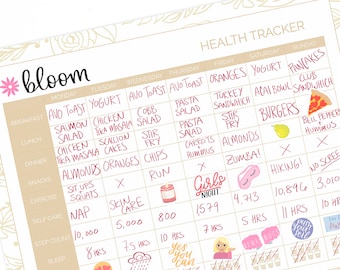 bloom
HEALTH TRACKER
MONDAY TUESDAY WEDNESDAY THURSDAY FRIDAY SATURDAY SUNDAY
BREAKFAST AVO TOAST YOGURT AVO TOAST AVO TOAST ORANGES YOGURT PANCAKES
LUNCH SALMON SALAD CHICKEN TIKA MASALA COBB SALAD PASTA SALAD TURKEY SANDWICH ACAI BOWL CLUB SANDWICH
DINNER SALMON SALAD CHICKEN TIKA MASALA STIR FRY PASTA SALAD STIR FRY BURGERS
SNACKS ALMONDS ORANGES CHIPS CARROTS HUMMUS ALMONDS BELL PEPPERS HUMMUS
EXERCISE SIT UPS SQUATS X RUN X ZUMBA! HIKING!
SELF CARE NAP SKIN CARE GIRLS NIGHT X NO SCREE
STEP COUNT 10,000 5,000 800 1579 4,713 10,896
SLEEP 8 HRS 7.5 HRS 7 HRS 11 HRS
YES YOU CAN